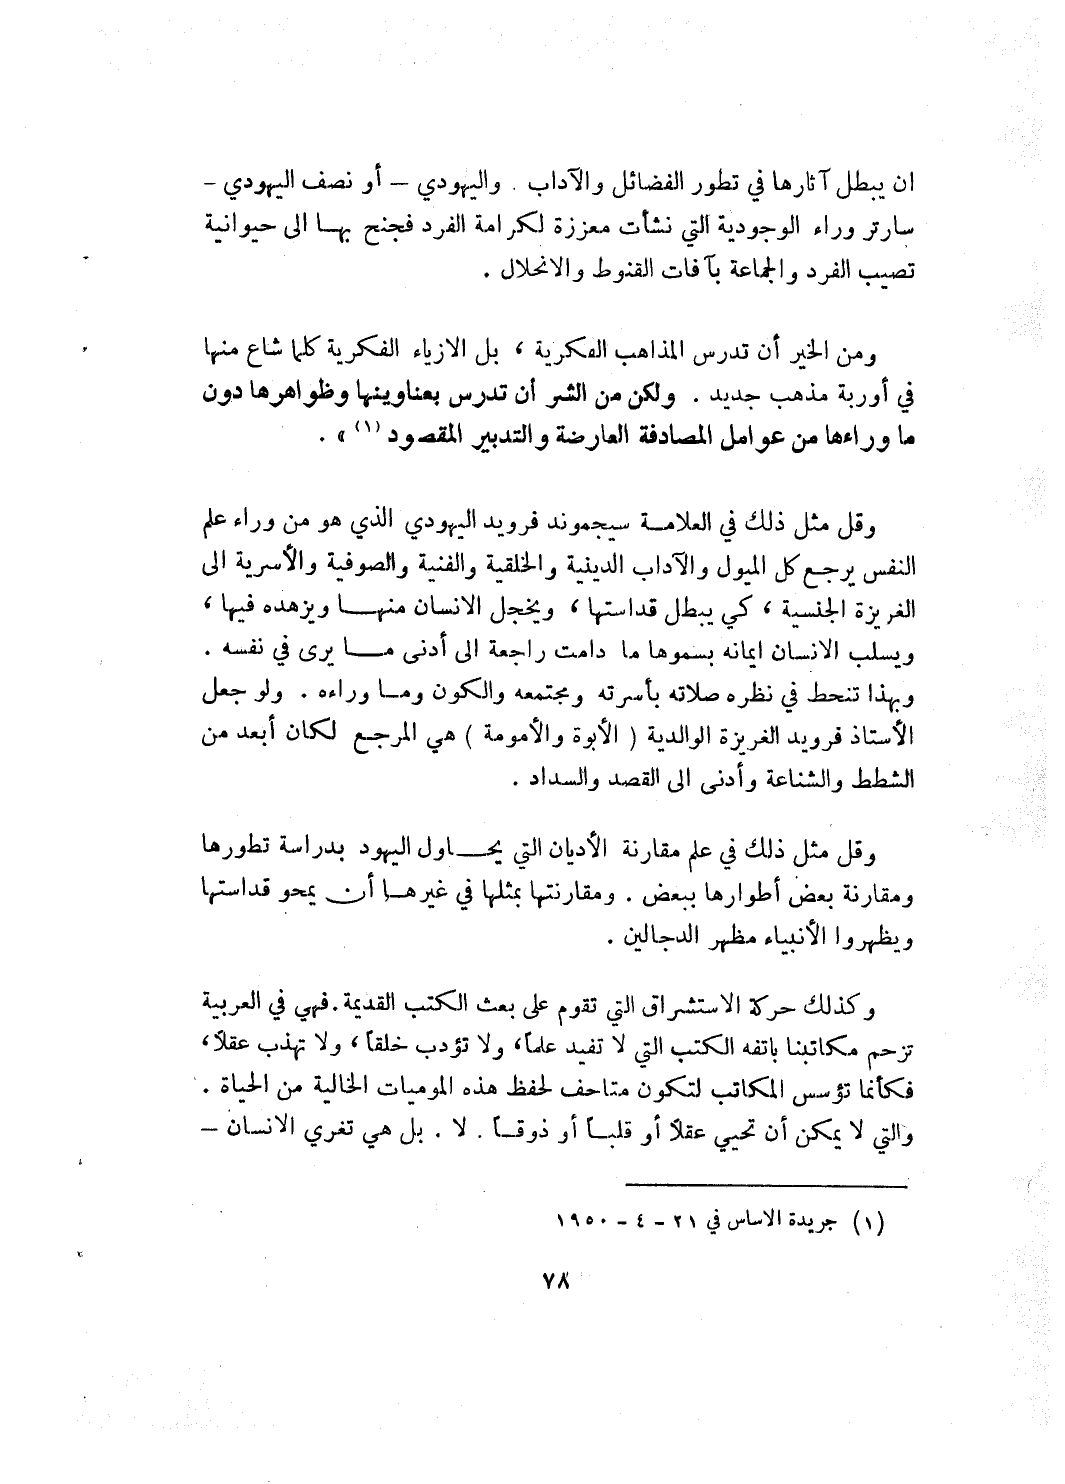 ان يبطل آثارها في تطور الفضائل والآداب . واليهودي – أو نصف اليهودي –
سارتر وراء الوجودية التي نشأت معززة لكرامة الفرد فجنح بهــا الى حيوانية
تصيب الفرد والجماعة بآفات القنوط والانحلال .
ومن الخير أن تدرس المذاهب الفكرية ، بل الازياء الفكرية كلما شاع منها
في أوربة مذهب جديد . ولكن من الشر أن تدرس بعناوينها وظواهرها دون
ما وراءها من عوامل المصادفة العارضة والتدبير المقصود (١) » .
وقل مثل ذلك في العلامــة سيجموند فرويد اليهودي الذي هو من وراء علم
النفس يرجــع كل الميول والآداب الدينية والخلقية والفنية والصوفية والأسرية الى
الغريزة الجنسية ، كي يبطل قداستها ، ويخجل الانسان منهــا ويزهده فيها ،
ويسلب الانسان ايمانه بسموها ما دامت راجعة الى أدنى مــا يرى في نفسه .
وبهذا تنحط في نظره صلاته بأسرته ومجتمعه والكون ومـا وراءه . ولو جعل
الأستاذ فرويد الغريزة الوالدية ( الأبوة والأمومة ) هي المرجع لكان أبعد من
الشطط والشناعة وأدنى الى القصد والسداد .
وقل مثل ذلك في علم مقارنة الأديان التي يحــاول اليهود بدراسة تطورها
ومقارنة بعض أطوارها ببعض . ومقارنتها بمثلها في غيرهــا أن يمحو قداستها
ويظهروا الأنبياء مظهر الدجالين .
وكذلك حركة الاستشراق التي تقوم على بعث الكتب القديمة . فهي في العربية
تزحم مكاتبنا باتفه الكتب التي لا تفيد علماً، ولا تؤدب خلقاً ، ولا تهذب عقلاً ،
فكأنما تؤسس المكاتب لتكون متاحف لحفظ هذه الموميات الخالية من الحياة .
والتي لا يمكن أن تحيي عقلاً أو قلبــاً أو ذوقــاً . لا . بل هي تغري الانسان –
(١) جريدة الاساس في ٢١ – ٤ – ١٩٥٠
٧٨